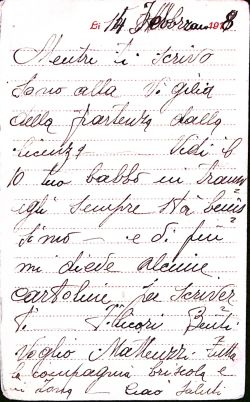 Li 14 Febbraio 1918
Mentre ti scrivo
sono alla Vigilia
della partenza dalla
licenza — Vidi il
10 tuo babbo in tranvai
egli sempre stà benis=
simo — e di più
mi diede alcune
cartoline per scriver
ti.
Voglio Matteuzzi
la compagnia briscola e
in Ciao Saluti